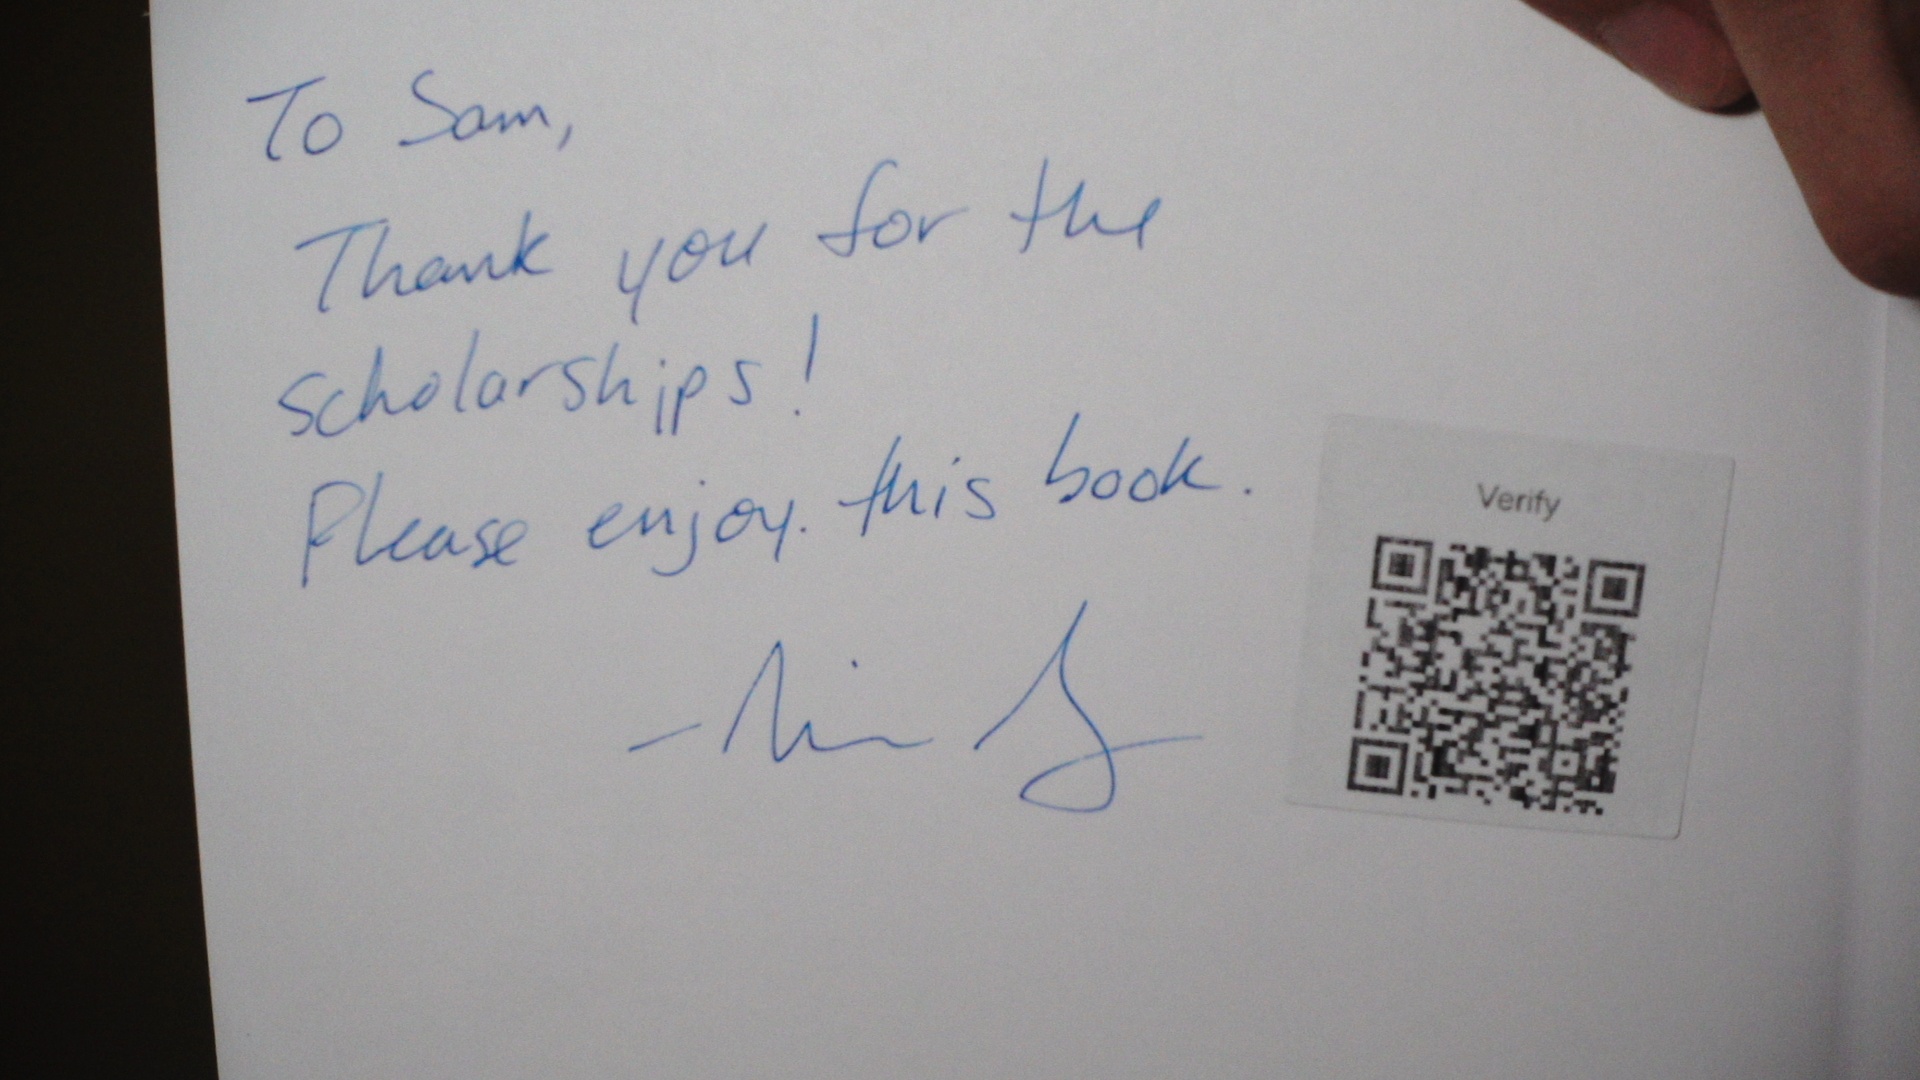 To Sam,
Thank you for the
scholarships!
Please enjoy. this book.
Verify